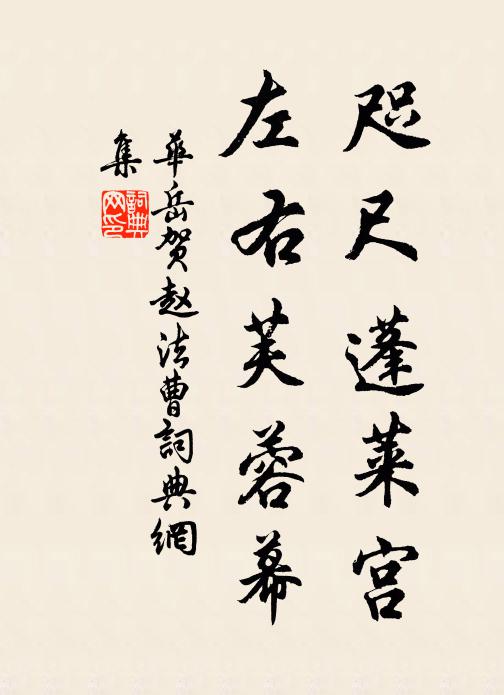 咫尺蓬莱宫
左右芙蓉幕
華岳賀赵法曹詞典網
集
詞典网印